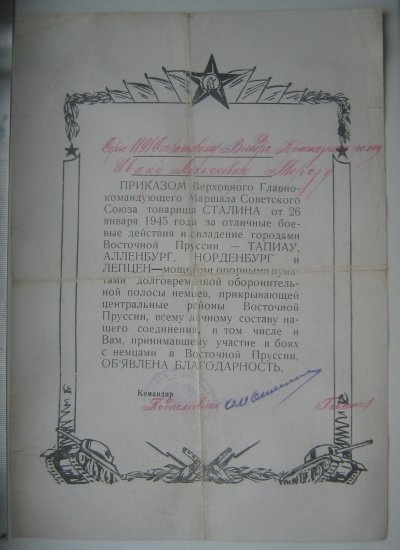 ПРИКАЗОМ Верховного Главно-
командующего Маршала Советского
Союза товарища СТАЛИНА от 26
января 1945 года за отличные бое-
вые действия и овладение городами
Восточной Пруссии — ТАПИАУ,
АЛЛЕНБУРГ, НОРДЕНБУРГ и
ЛЕПЦЕН—мощными опорными пунк-
тами долговременной оборонитель-
ной полосы немцев, прикрывающей
центральные районы Восточной
Пруссии, всему личному составу на-
шего соединения, в том числе и
Вам, принимавшему участие в боях
с немцами в Восточной Пруссии,
ОБ'ЯВЛЕНА БЛАГОДАРНОСТЬ.
Командир
Подполковник